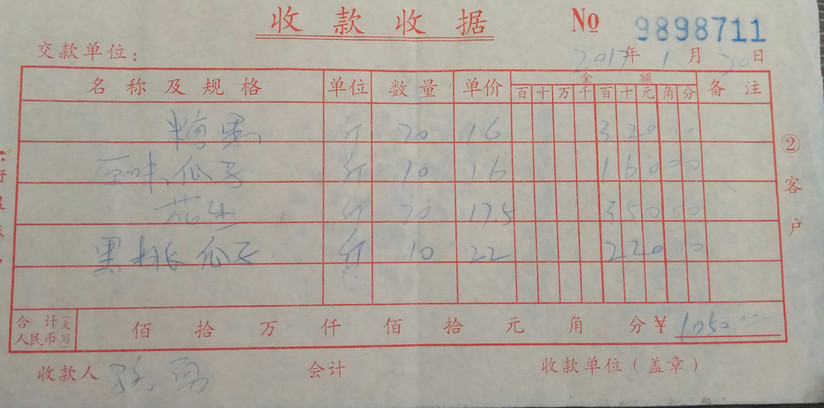 收款收据 No 9898711
交款单位： 2017年1月20日
名称及规格 单位 数量 单价 金额 备注
百 十 万 千 百 十 元 角 分
糖果 斤 20 16 32000
原味瓜子 斤 10 16 16000
花生 斤 20 17.5 35000
黑桃瓜子 斤 10 22 22000
合计人民币(大万) 佰 拾 万 仟 佰 拾 元 角 分 ¥ 1050.00
收款人 会计 收款单位(盖章)
②客户